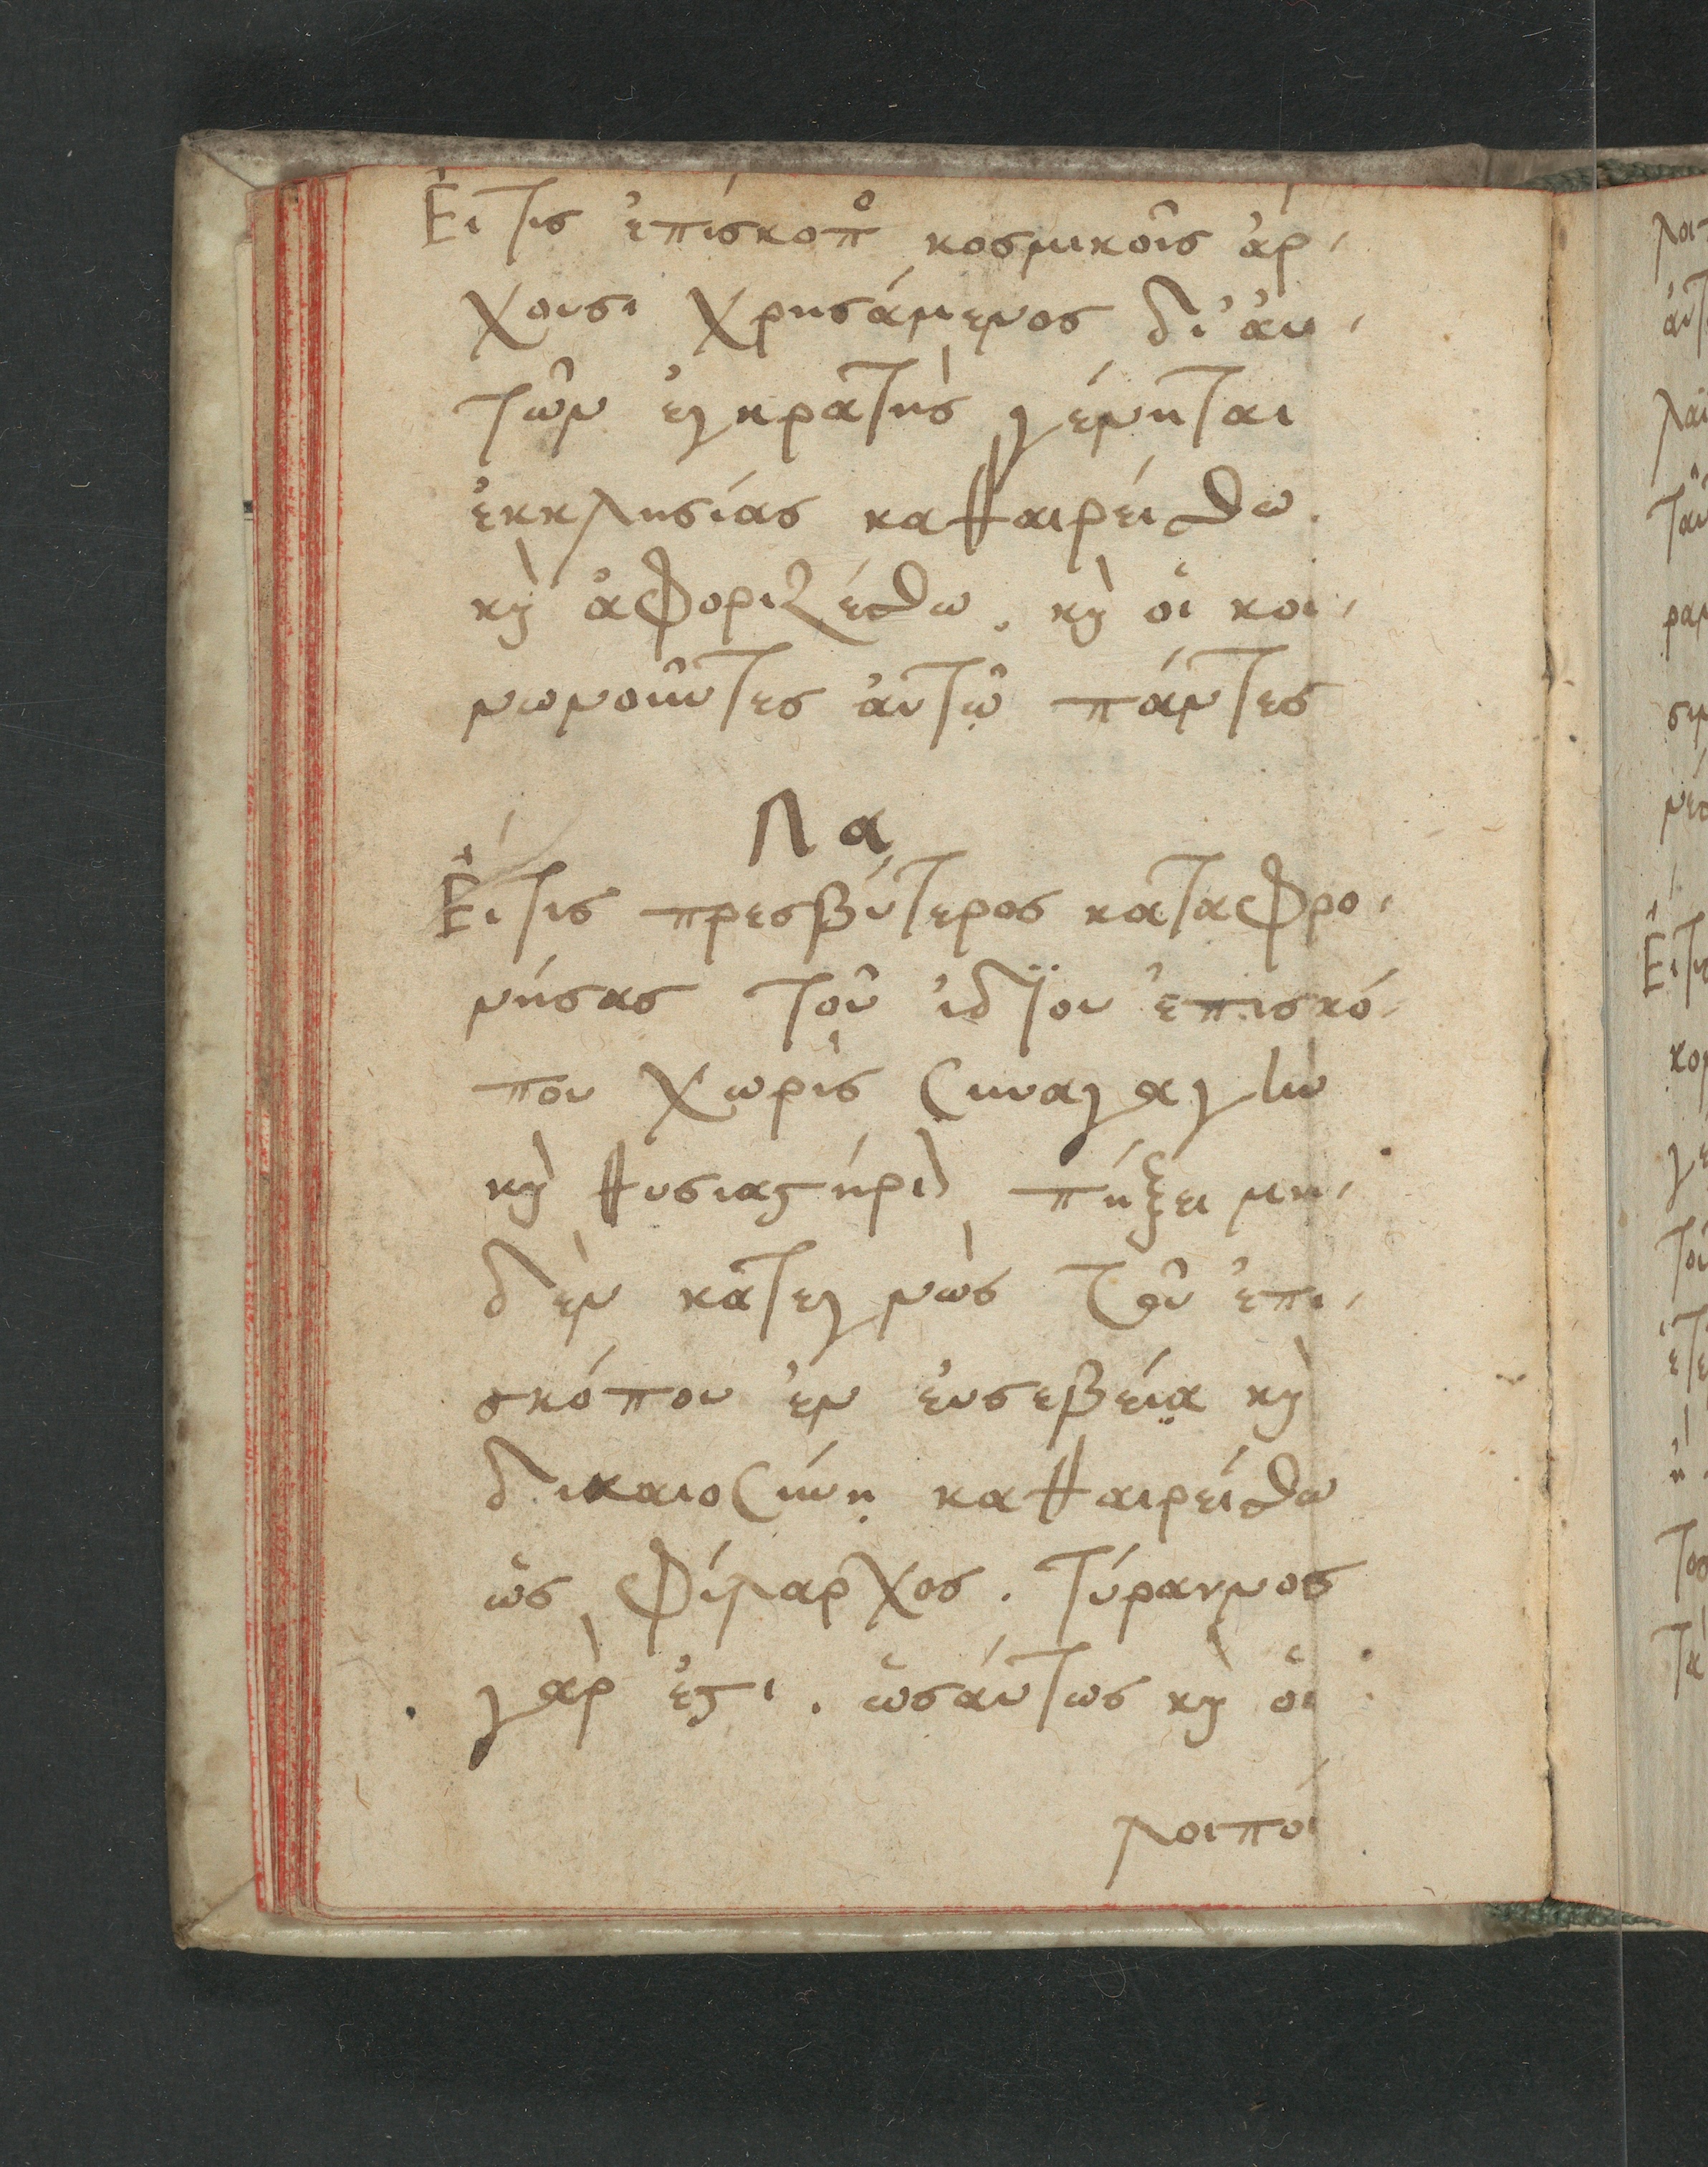 Εἴ τις ἐπίσκοπο κοσμικοῖς ἄρ-
χουσι χρησάμενος δι' ἀυ-
τῶν ἐγκρατὴς γένηται
ἐκκλησίας καθαιρείσθω.
καὶ ἀφοριζέσθω. καὶ οἱ κοι-
νωνοῦντες ἀυτῷ πάντες
Λα
Εἴ τις πρεσβύτερος καταφρο-
νήσας τοῦ ἰδΐου ἐπισκό-
που χωρὶς συναγαγὼν
καὶ θυσιαστήριον πήξει μη-
δὲν κατεγνὼς τοῦ ἐπι-
σκόπου ἐν ἐυσεβείᾳ καὶ
δικαιοσύνῃ καθαιρείσθω
ὡς φίλαρχος. τύραννος
γὰρ ἐστι. ὡσάυτως καὶ οἱ
λοιποί